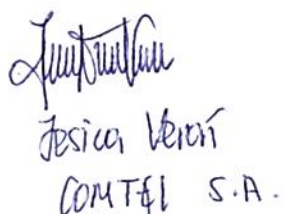 Jesica Verón
COMTEL S.A.